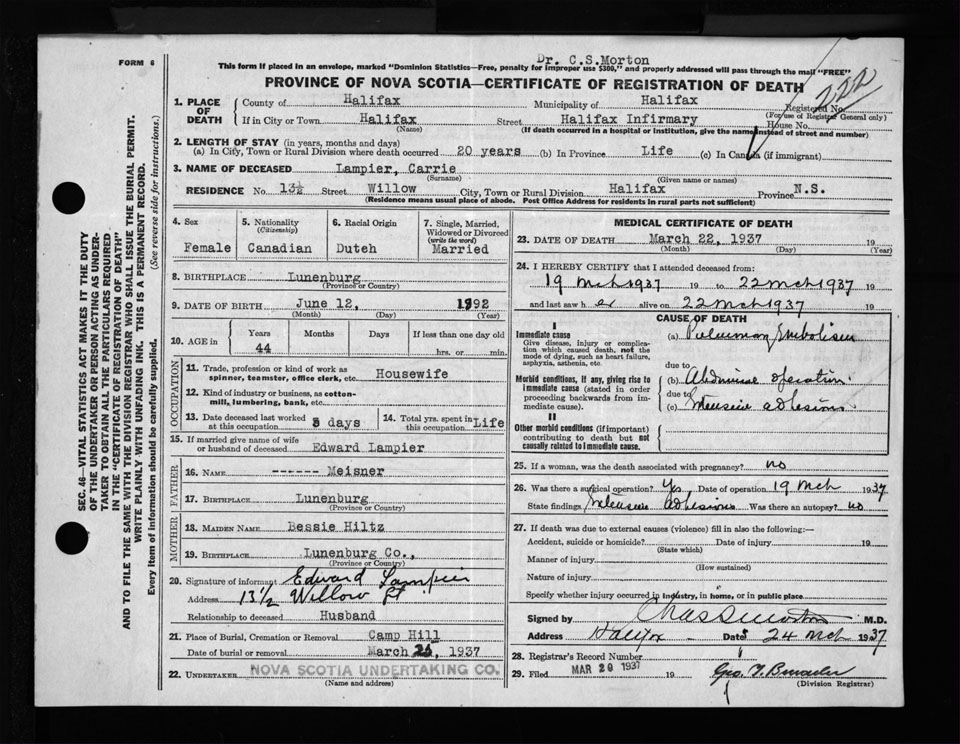 Dr. C.S.Morton
FORM 6
This form if placed in an envelope, marked "Dominion Statistics—Free, penalty for improper use $300," and properly addressed will pass through the mail "FREE"
PROVINCE OF NOVA SCOTIA—CERTIFICATE OF REGISTRATION OF DEATH
222
1. PLACE OF DEATH
County of Halifax Municipality of Halifax Registered No.
(For use of Registrar General only)
If in City or Town Halifax Street Halifax Infirmary House No.
(Name) (If death occurred in a hospital or institution, give the name instead of street and number)
2. LENGTH OF STAY (in years, months and days)
(a) In City, Town or Rural Division where death occurred 20 years (b) In Province Life (c) In Canada (if immigrant)
3. NAME OF DECEASED Lampier, Carrie
(Surname) (Given name or names)
RESIDENCE No. 13½ Street Willow City, Town or Rural Division Halifax Province N.S.
(Residence means usual place of abode. Post Office Address for residents in rural parts not sufficient)
4. Sex Female
5. Nationality (Citizenship) Canadian
6. Racial Origin Dutch
7. Single, Married, Widowed or Divorced (write the word) Married
8. BIRTHPLACE Lunenburg
(Province or Country)
9. DATE OF BIRTH June 12, 1892
(Month) (Day) (Year)
10. AGE in Years Months Days If less than one day old
44 hrs. or min.
OCCUPATION
11. Trade, profession or kind of work as spinner, teamster, office clerk, etc. Housewife
12. Kind of industry or business, as cotton-mill, lumbering, bank, etc.
13. Date deceased last worked at this occupation 3 days
14. Total yrs. spent in this occupation Life
15. If married give name of wife or husband of deceased Edward Lampier
FATHER
16. NAME ------ Meisner
17. BIRTHPLACE Lunenburg
(Province or Country)
MOTHER
18. MAIDEN NAME Bessie Hiltz
19. BIRTHPLACE Lunenburg Co.,
(Province or Country)
20. Signature of informant Edward Lampier
Address 13 1/2 Willow St
Relationship to deceased Husband
21. Place of Burial, Cremation or Removal Camp Hill
Date of burial or removal March 1937
22. UNDERTAKER NOVA SCOTIA UNDERTAKING CO.
(Name and address)
MEDICAL CERTIFICATE OF DEATH
23. DATE OF DEATH March 22, 1937 19
(Month) (Day) (Year)
24. I HEREBY CERTIFY that I attended deceased from:
19 Mch 1937 19 to 22 Mch 1937 19
and last saw her alive on 22 Mch 1937 19
CAUSE OF DEATH
I
Immediate cause
Give disease, injury or complication which caused death, not the mode of dying, such as heart failure, asphyxia, asthenia, etc.
(a) Pulmonary Embolism
due to
Morbid conditions, if any, giving rise to immediate cause (stated in order proceeding backwards from immediate cause).
(b) Abdominal operation
due to
(c) Intensive adhesions
II
Other morbid conditions (if important) contributing to death but not causally related to immediate cause.
25. If a woman, was the death associated with pregnancy? no
26. Was there a surgical operation? Yes Date of operation 19 Mch 1937
State findings Intensive adhesions Was there an autopsy? no
27. If death was due to external causes (violence) fill in also the following:—
Accident, suicide or homicide? Date of injury 19
(State which)
Manner of injury
(How sustained)
Nature of injury
Specify whether injury occurred in industry, in home, or in public place
Signed by Chas S Morton M.D.
Address Halifax Date 24 Mch 1937
28. Registrar's Record Number
29. Filed MAR 20 1937 19
(Division Registrar)
SEC. 46—VITAL STATISTICS ACT MAKES IT THE DUTY
OF THE UNDERTAKER OR PERSON ACTING AS UNDER-
TAKER TO OBTAIN ALL THE PARTICULARS REQUIRED
IN THE "CERTIFICATE OF REGISTRATION OF DEATH"
AND TO FILE THE SAME WITH THE DIVISION REGISTRAR WHO SHALL ISSUE THE BURIAL PERMIT.
WRITE PLAINLY WITH UNFADING INK. THIS IS A PERMANENT RECORD.
Every item of information should be carefully supplied. (See reverse side for instructions.)